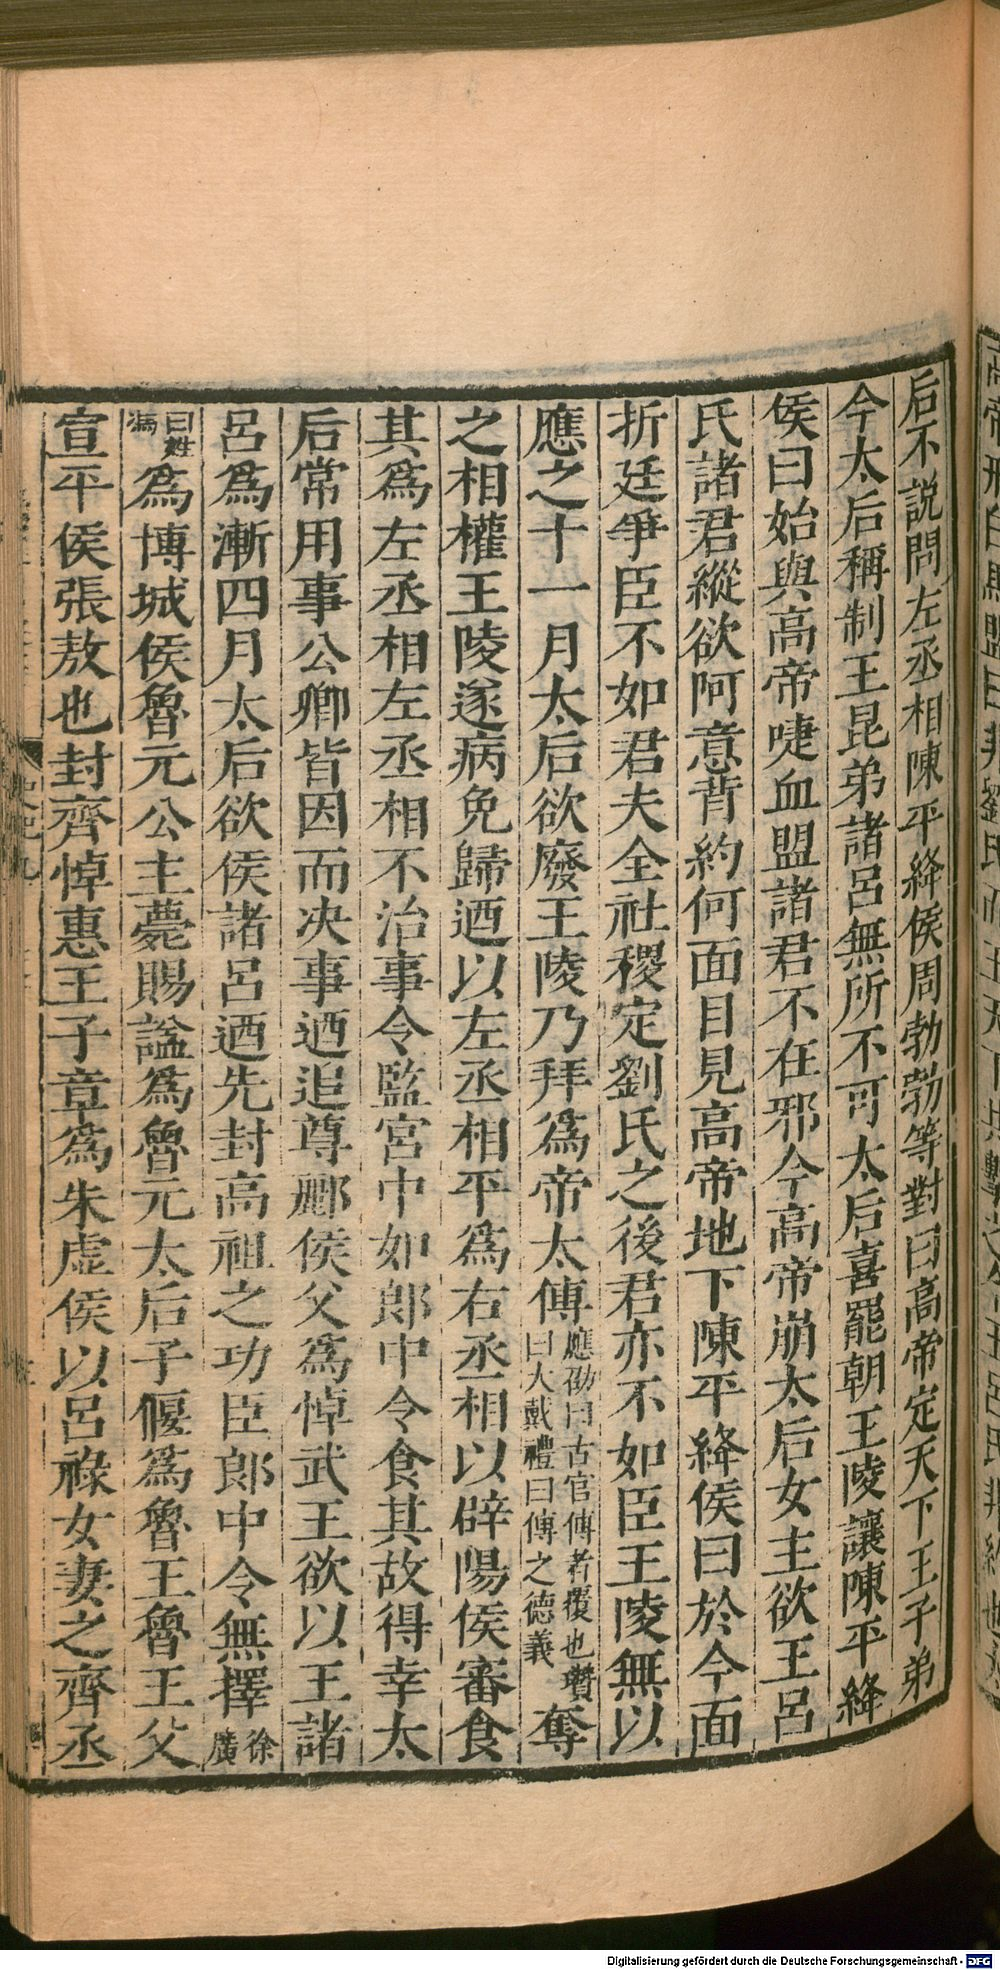 后不說問左丞相陳平絳侯周勃勃等對曰高帝定天下王子弟
今太后稱制王昆弟諸呂無所不可太后喜罷朝王陵讓陳平絳
侯曰始與高帝啑血盟諸君不在邪今高帝崩太后女主欲王呂
氏諸君縱欲阿意背約何面目見高帝地下陳平絳侯曰於今面
折廷爭臣不如君夫全社稷定劉氏之後君亦不如臣王陵無以
應之十一月太后欲廢王陵乃拜爲帝太傅應劭曰古官傅者覆也瓚曰大戴禮曰傅之德義奪
之相權王陵遂病免歸迺以左丞相平爲右丞相以辟陽侯審食
其爲左丞相左丞相不治事令監宮中如郎中令食其故得幸太
后常用事公卿皆因而决事迺追尊酈侯父爲悼武王欲以王諸
呂爲漸四月太后欲侯諸呂迺先封高祖之功臣郎中令無擇徐廣
曰姓馮爲博城侯魯元公主薨賜謚爲魯元太后子偃爲魯王魯王父
宣平侯張敖也封齊悼惠王子章爲朱虚侯以呂祿女妻之齊丞
Digitalisierung gefördert durch die Deutsche Forschungsgemeinschaft - DFG